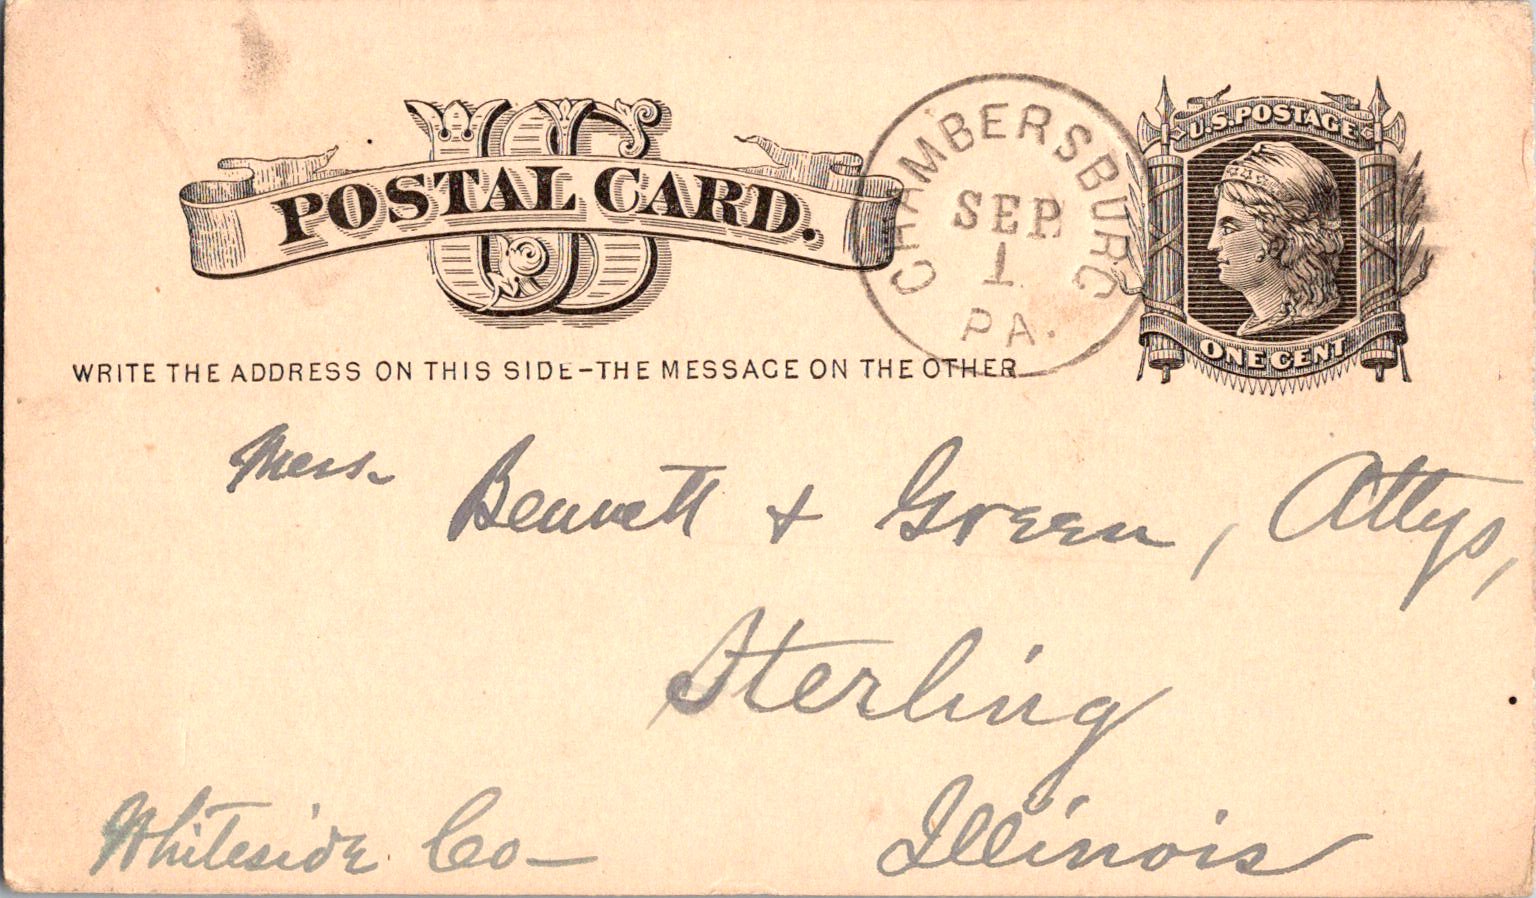 US
POSTAL CARD.
CHAMBERSBURG
SEP
1
PA.
U.S. POSTAGE
ONE CENT
WRITE THE ADDRESS ON THIS SIDE-THE MESSAGE ON THE OTHER
Mess. Bennett + Green, Attys,
Sterling
Whiteside Co— Illinois